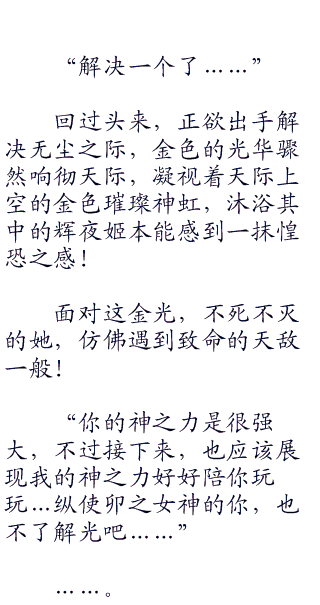 “解决一个了……”
回过头来，正欲出手解
决无尘之际，金色的光华骤
然响彻天际，凝视着天际上
空的金色璀璨神虹，沐浴其
中的辉夜姬本能感到一抹惶
恐之感！
面对这金光，不死不灭
的她，仿佛遇到致命的天敌
一般！
“你的神之力是很强
大，不过接下来，也应该展
现我的神之力好好陪你玩
玩…纵使卯之女神的你，也
不了解光吧……”
……。